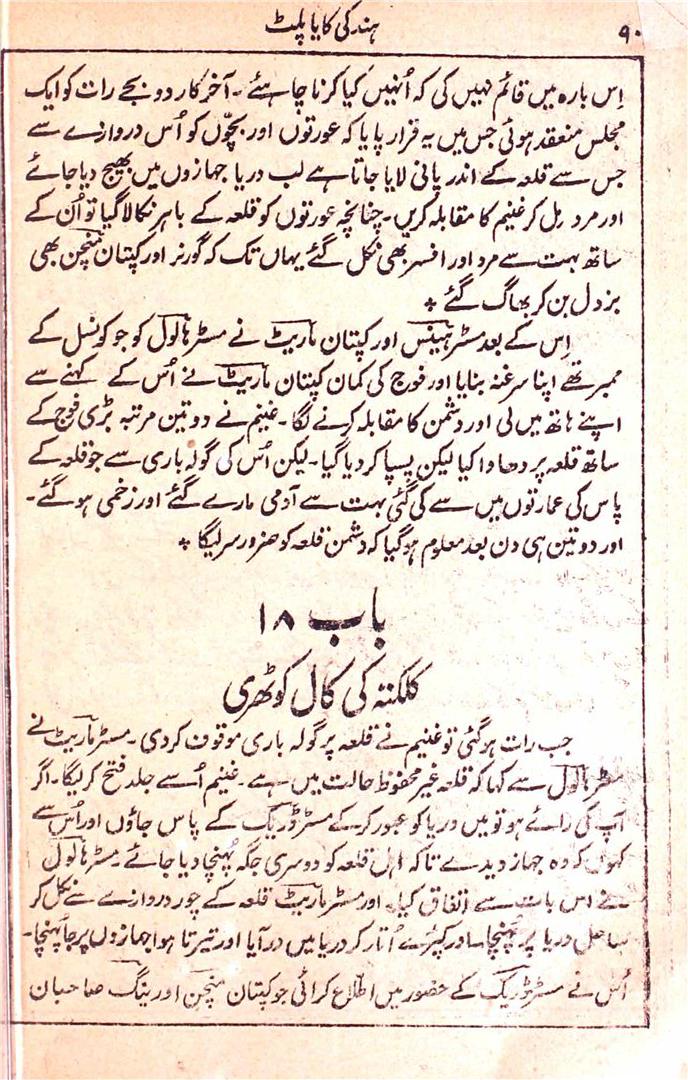 ۹۰
ہند کی کایا پلٹ
اِس بارہ میں قائم نہیں کی کہ اُنہیں کیا کرنا چاہئے ۔ آخر کار دو بجے رات کو ایک
مجلس منعقد ہوئی جس میں یہ قرار پایا کہ عورتوں اور بچّوں کو اُس دروازے سے
جس سے قلعہ کے اندر پانی لایا جاتا ہے لب دریا جہازوں میں بھیج دیا جائے
اور مرد مِل کر غنیم کا مقابلہ کریں ۔ چنانچہ عورتوں کو قلعہ کے باہر نکالا گیا تو اُن کے
ساتھ بہت سے مرد اور افسر بھی نکل گئے یہاں تک کہ گورنر اور کپتان منچن بھی
بزدل بن کر بھاگ گئے ٭
اِس کے بعد مسٹر ہینس اور کپتان ماریٹ نے مسٹر ہالول کو جو کونسل کے
ممبر تھے اپنا سرغنہ بنایا اور فوج کی کمان کپتان ماریٹ نے اُس کے کہنے سے
اپنے ہاتھ میں لی اور دشمن کا مقابلہ کرنے لگا ۔ غنیم نے دو تین مرتبہ بڑی فوج کے
ساتھ قلعہ پر دھاوا کیا لیکن پسپا کر دیا گیا ۔ لیکن اُس کی گولہ باری سے جو قلعہ کے
پاس کی عمارتوں میں سے کی گئی بہت سے آدمی مارے گئے اور زخمی ہو گئے ۔
اور دو تین ہی دن بعد معلوم ہو گیا کہ دشمن قلعہ کو ضرور سر لیگا ٭
باب ۱۸
کلکتہ کی کال کوٹھری
جب رات ہو گئی تو غنیم نے قلعہ پر گولہ باری موقوف کر دی ۔ مسٹر ماریٹ نے
مسٹر ہالول سے کہا کہ قلعہ غیر محفوظ حالت میں ہے ۔ غنیم اُسے جلد فتح کر لیگا ۔ اگر
آپ کی رائے ہو تو میں دریا کو عبور کر کے مسٹر ڈریک کے پاس جاؤں اور اُس سے
کہوں کہ وہ جہاز دیدے تاکہ اہل قلعہ کو دوسری جگہ پُہنچا دیا جائے ۔ مسٹر ہالول
نے اس بات سے اتفاق کیا اور مسٹر ماریٹ قلعہ کے چور دروازے سے نکل کر
ساحل دریا پر پُہنچا اور کپڑے اُتار کر دریا میں در آیا اور تیرتا ہوا جہازوں پر جا پُہنچا ۔
اُس نے مسٹر ڈریک کے حضور میں اطلاع کرائی جو کپتان منچن اور ینگ صاحبان